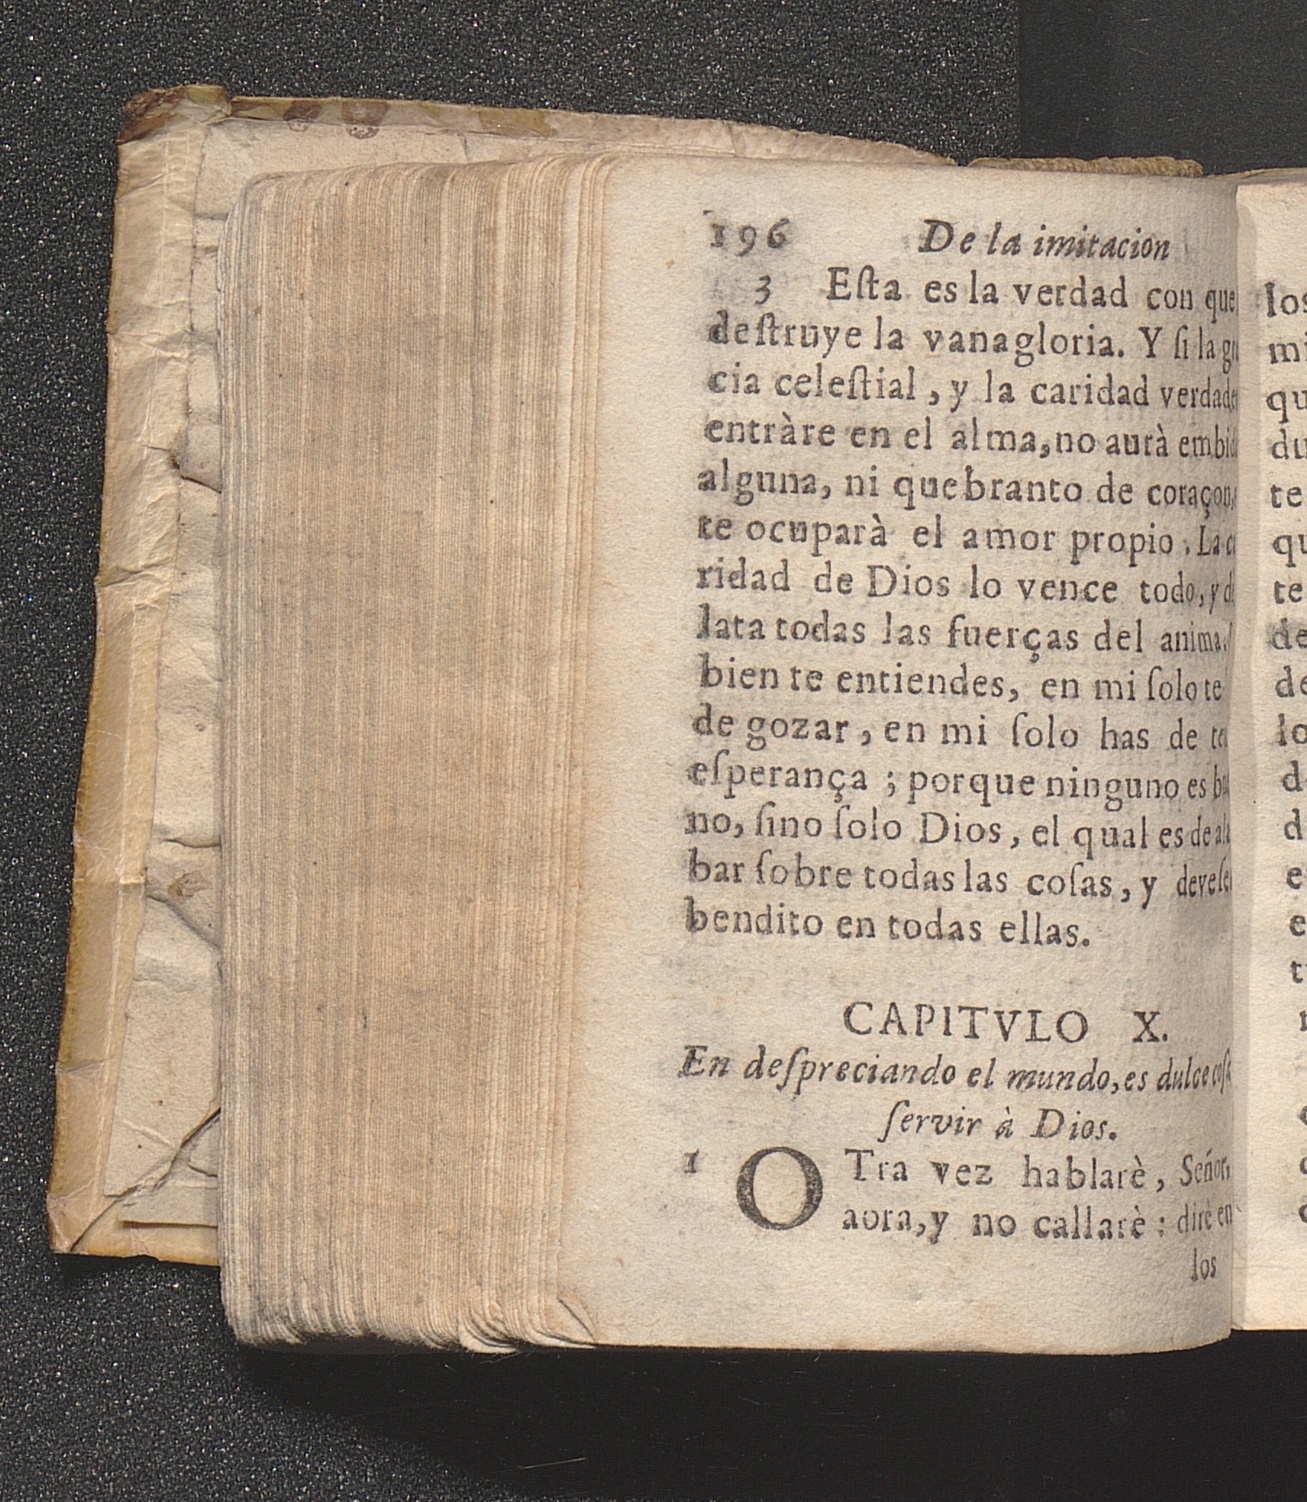 196 De la imitacion
3 Eſta es la verdad con que
deſtruye la vanagloria. Y ſi la
cia celeſtial, y la caridad
entràre en el alma, no aurà
alguna, ni quebranto de coraçon,
te ocuparà el amor propio. La
ridad de Dios lo vence todo, y
lata todas las fuerças del anima.
bien te entiendes, en mi ſolo te
de gozar, en mi ſolo has de
eſperança; porque ninguno es
no, ſino ſolo Dios, el qual es de
bar ſobre todas las coſas, y
bendito en todas ellas.
CAPITVLO X.
En deſpreciando el mundo, es dulce coſa
ſervir à Dios.
1 OTra vez hablarè, Señor,
aora, y no callarè: dirè en
los